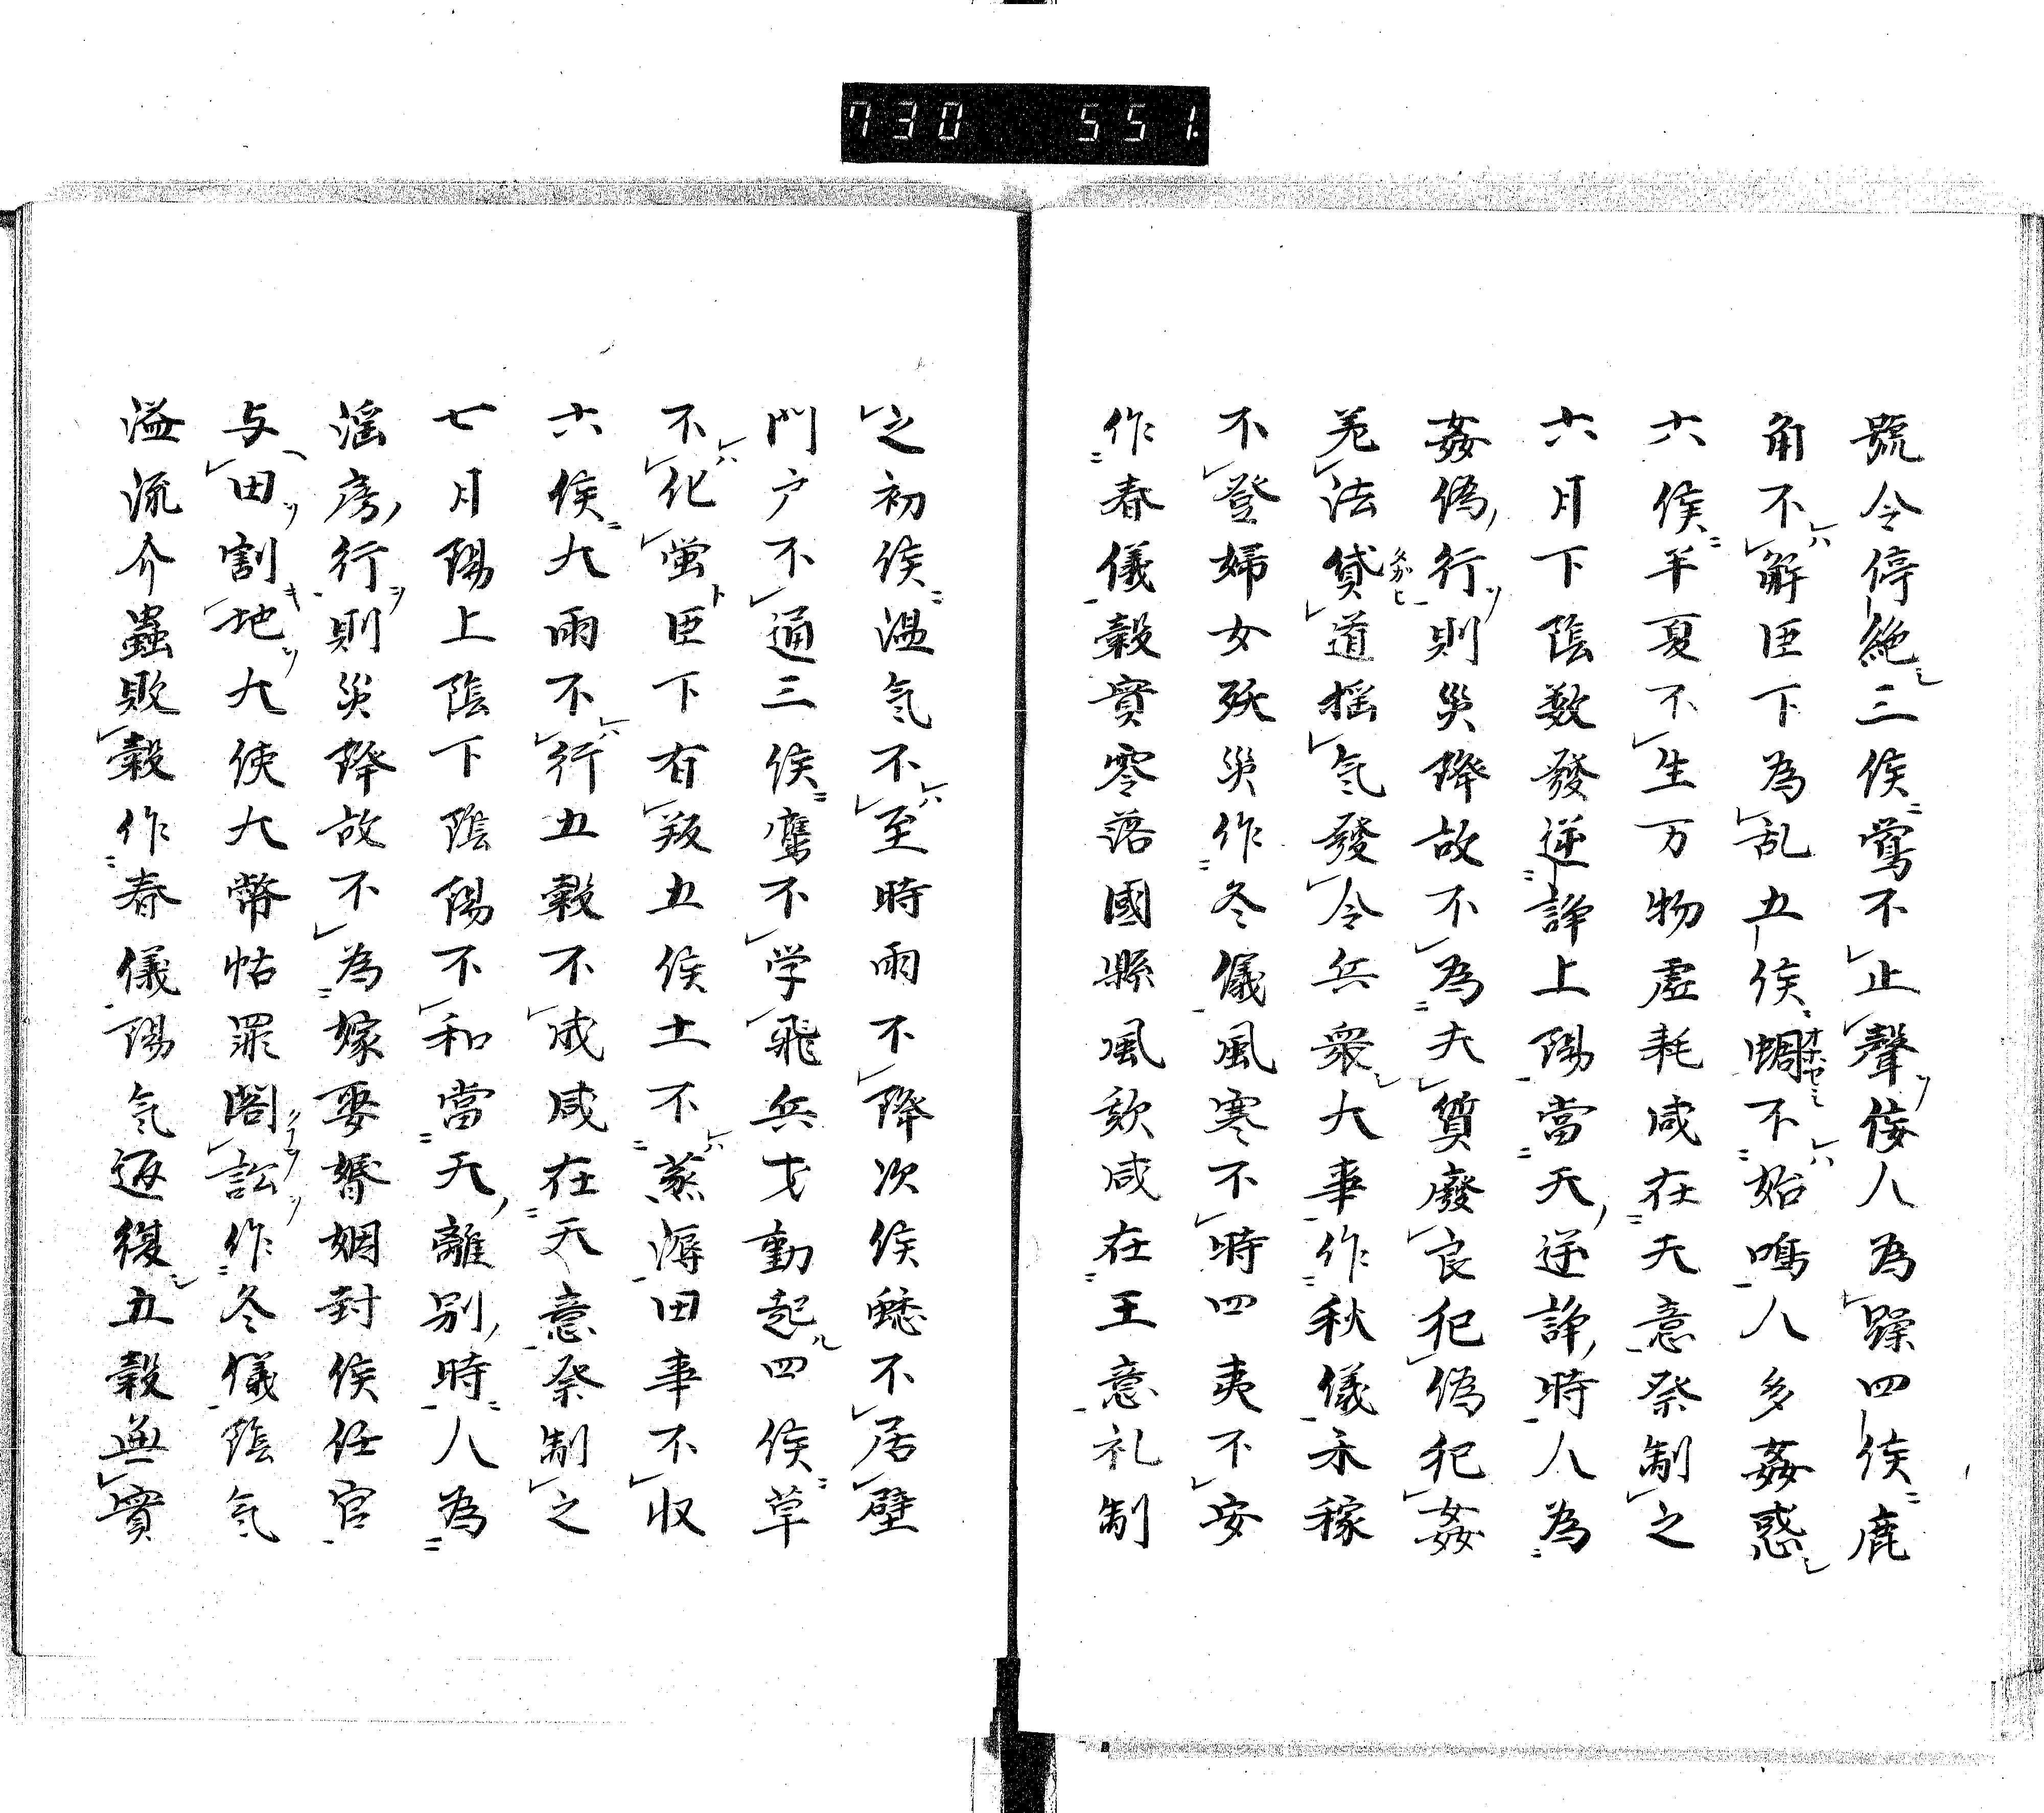 730 551.
號令停絶三侯鶯不止聲佞人為躁四侯鹿
角不解臣下為乱五侯蜩不始鳴人多姦惑
六侯半夏不生万物虚耗咸在天意祭制之
六月下陰数發逆諍上陽當天逆諍時人為
姦偽行則災降故不為夫質廢良犯偽犯姦
羌法貸道揺気發令兵衆大事作秋儀禾稼
不登婦女殀災作冬儀風寒不時四夷不安
作春儀穀實零落國縣風欬咸在王意礼制
之初侯温気不至時雨不降次侯蟋不居壁
門戸不通三侯鷹不学飛兵才動起四侯草
不化蛍臣下有叛五侯土不蒸溽田事不収
六侯大雨不行五穀不成咸在天意祭制之
七月陽上陰下陰陽不和當天離別時人為
淫房行則災降故不為嫁娶婚姻封侯任官
与田割地大使大幣怙罪閣訟作冬儀陰気
溢流介蟲敗穀作春儀陽気返復五穀無實